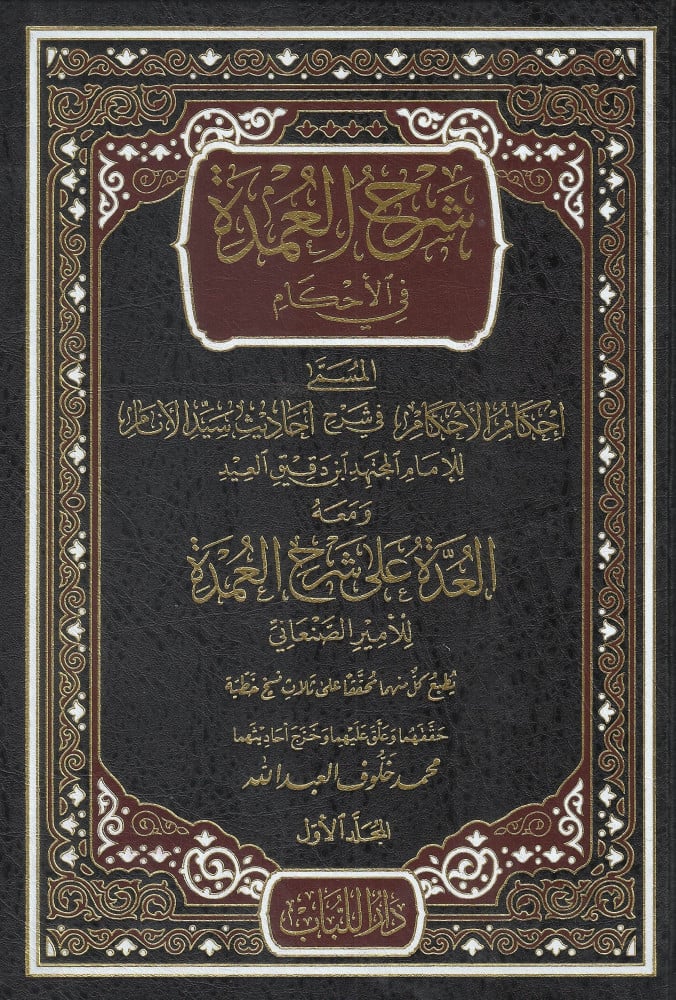 شَرْحُ العُمْدَةِ
فِي الأَحْكَامِ
المُسَمَّى
إِحْكَامُ الأَحْكَامِ فِي شَرْحِ أَحَادِيثِ سَيِّدِ الأَنَامِ
لِلإِمَامِ المُجْتَهِدِ ابْنِ دَقِيقِ العِيدِ
وَمَعَهُ
العُدَّةُ عَلَى شَرْحِ العُمْدَةِ
لِلأَمِيرِ الصَّنْعَانِيِّ
يُطْبَعُ كُلٌّ مِنْهُمَا مُحَقَّقًا عَلَى ثَلَاثِ نُسَخٍ خَطِّيَّة
حَقَّقَهُمَا وَعَلَّقَ عَلَيْهِمَا وَخَرَّجَ أَحَادِيثَهُمَا
محمد خَلُوف العبد الله
المُجَلَّدُ الأَوَّلُ
دَارُ اللُّبَابِ